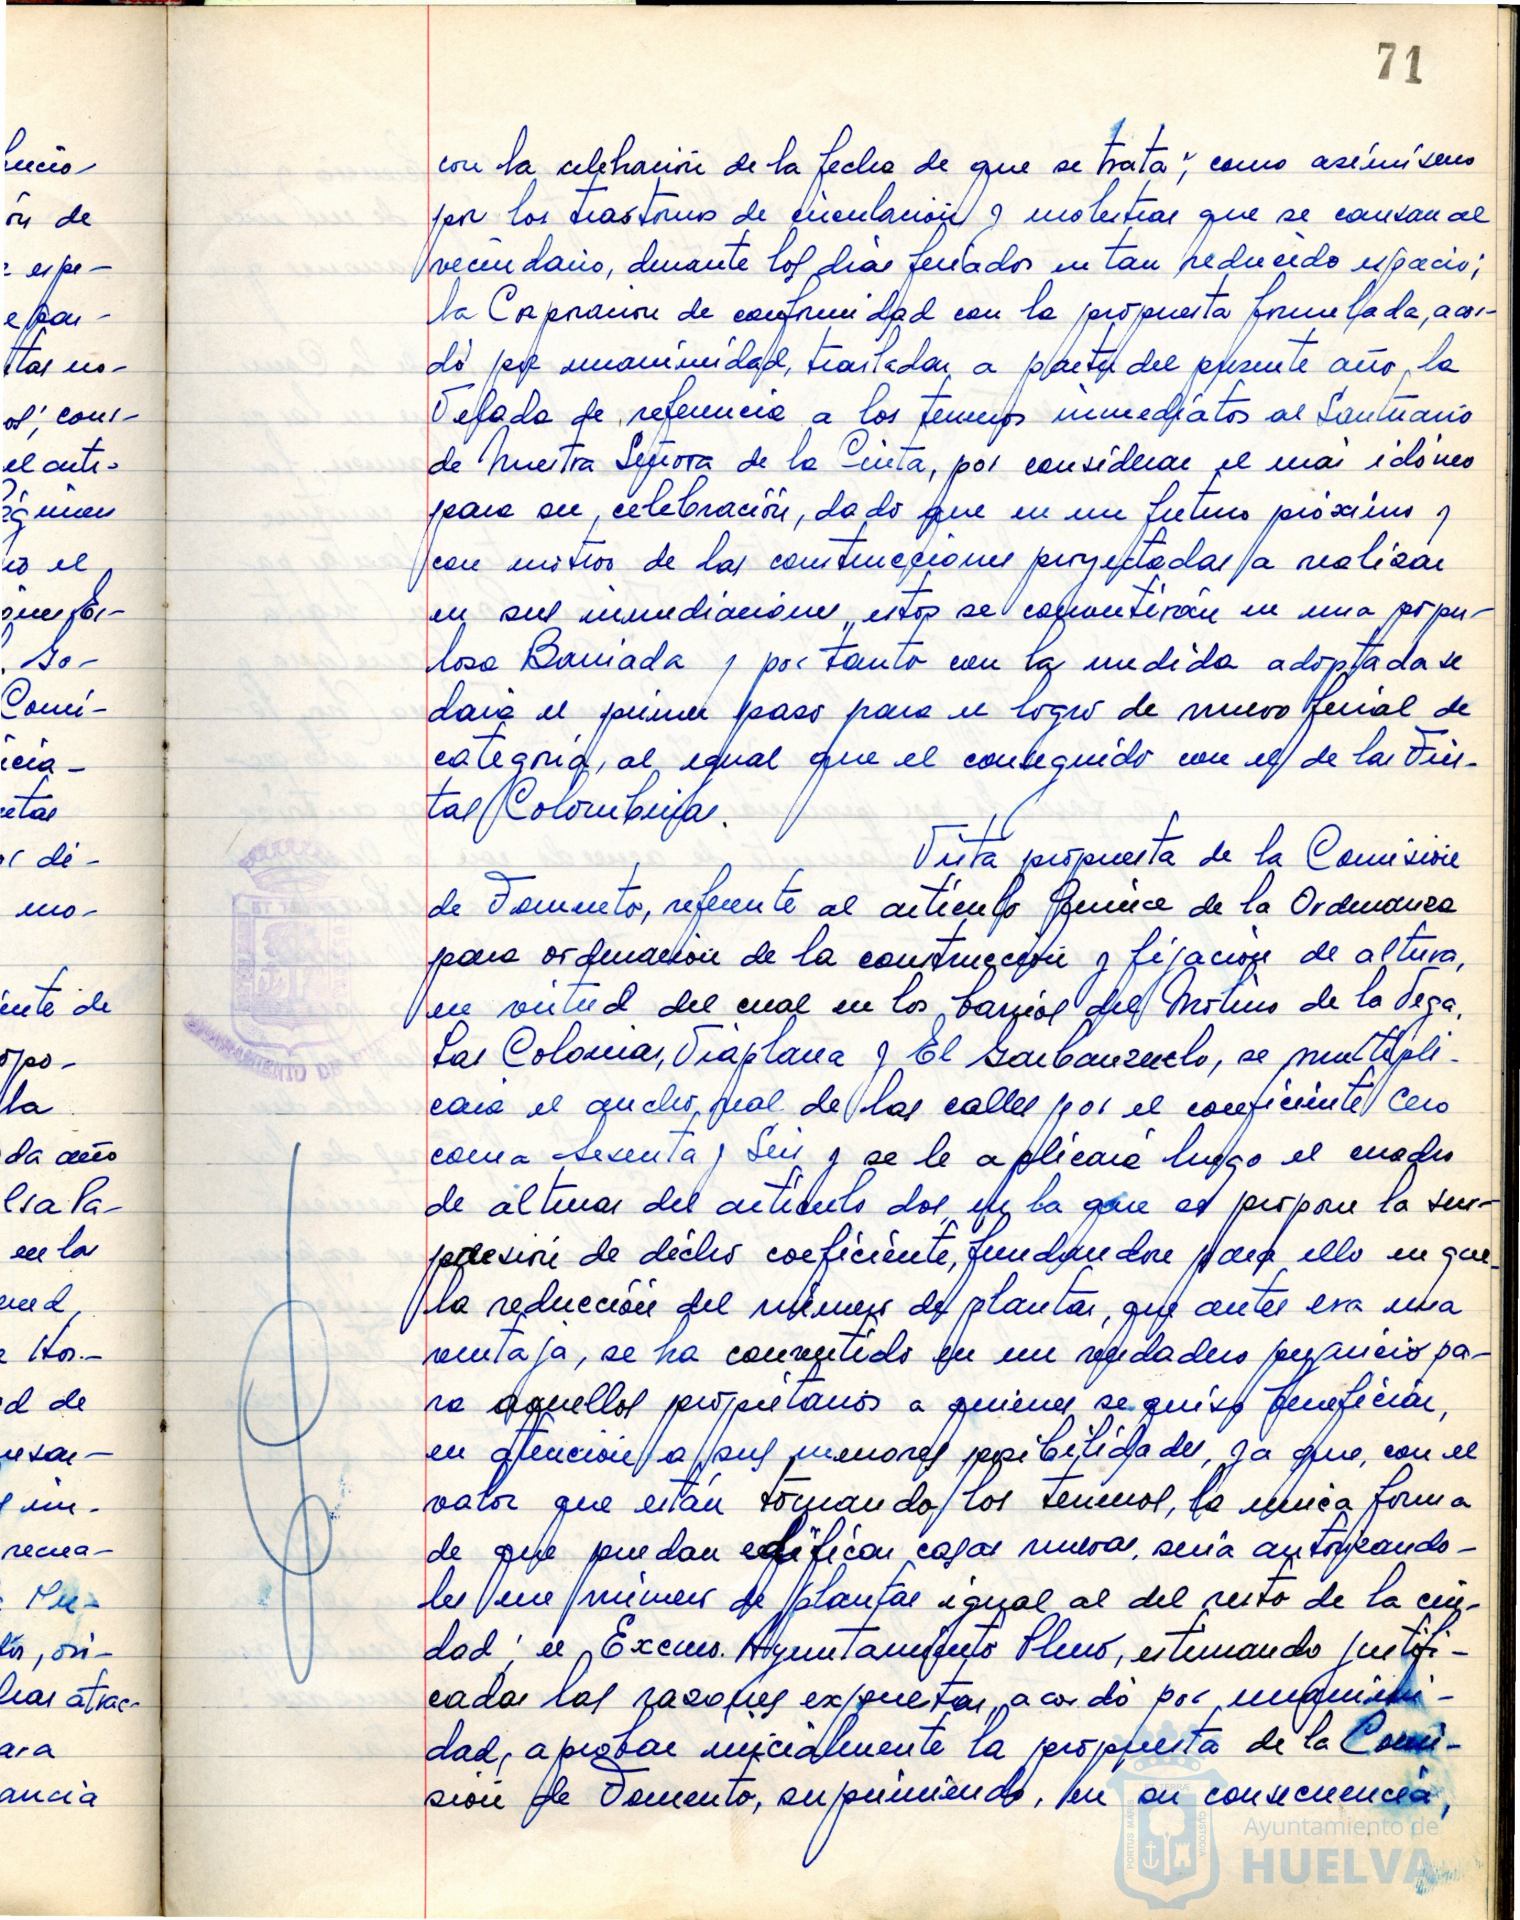 71
con la celebración de la fecha de que se trata; como asimismo
por los trastornos de circulación y molestias que se causan al
vecindario, durante los días feriados en tan reducido espacio;
la Corporación de conformidad con la propuesta formulada, acor-
dó por unanimidad, trasladar a partir del presente año, la
Velada de referencia a los terrenos inmediatos al Santuario
de Nuestra Señora de la Cinta, por considerar el más idóneo
para su celebración, dado que en un futuro próximo y
con motivo de las construcciones proyectadas a realizar
en sus inmediaciones, estos se convertirán en una popu-
losa Barriada y por tanto con la medida adoptada se
daría el primer paso para el logro de nuevo ferial de
categoría, al igual que el conseguido con el de las Fies-
tas Colombinas.
Vista propuesta de la Comisión
de Fomento, referente al artículo Quince de la Ordenanza
para ordenación de la construcción y fijación de altura,
en virtud del cual en los barrios del Molino de la Vega,
Las Colonias, Viaplana y El Garbanzuelo, se multipli-
cará el ancho real de las calles por el coeficiente Cero
coma Sesenta y Seis y se le aplicará luego el cuadro
de alturas del artículo dos, en la que se propone la su-
presión de dicho coeficiente, fundandose para ello en que
la reducción del número de plantas, que antes era una
ventaja, se ha convertido en un verdadero perjuicio pa-
ra aquellos propietarios a quienes se quiso beneficiar,
en atención a sus menores posibilidades, ya que, con el
valor que están tomando los terrenos, la unica forma
de que puedan edificar casas nuevas, seria autorizando-
les un número de plantas igual al del resto de la ciu-
dad; el Excmo. Ayuntamiento Pleno, estimando justifi-
cadas las razones expuestas, acordó por unanimi-
dad, aprobar inicialmente la propuesta de la Comi-
sión de Fomento, suprimiendo, en su consecuencia,
Ayuntamiento de
HUELVA
ón de
espe-
cons-
el artí-
no el
Comi-
icia-
di-
mo-
ente de
la
da año
en la
d de
recrea-
ara
ancia